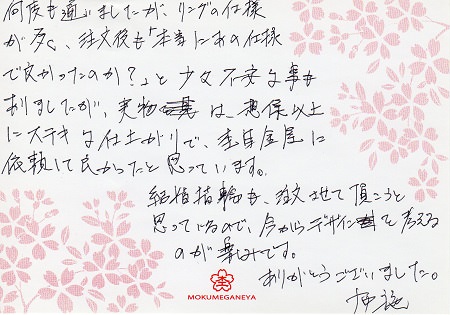 何度も通いましたが、リングの仕様
が多く、注文後も「本当にあの仕様
で良かったのか？」と少々不安な事も
ありましたが、実物は、想像以上
にステキな仕上がりで、杢目金屋に
依頼して良かったと思っています。
結婚指輪も、注文させて頂こうと
思っているので、今からデザインを考える
のが楽しみです。
ありがとうございました。
MOKUMEGANEYA